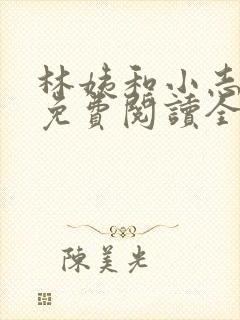 林姨和小志
免費閱讀全
陳美光